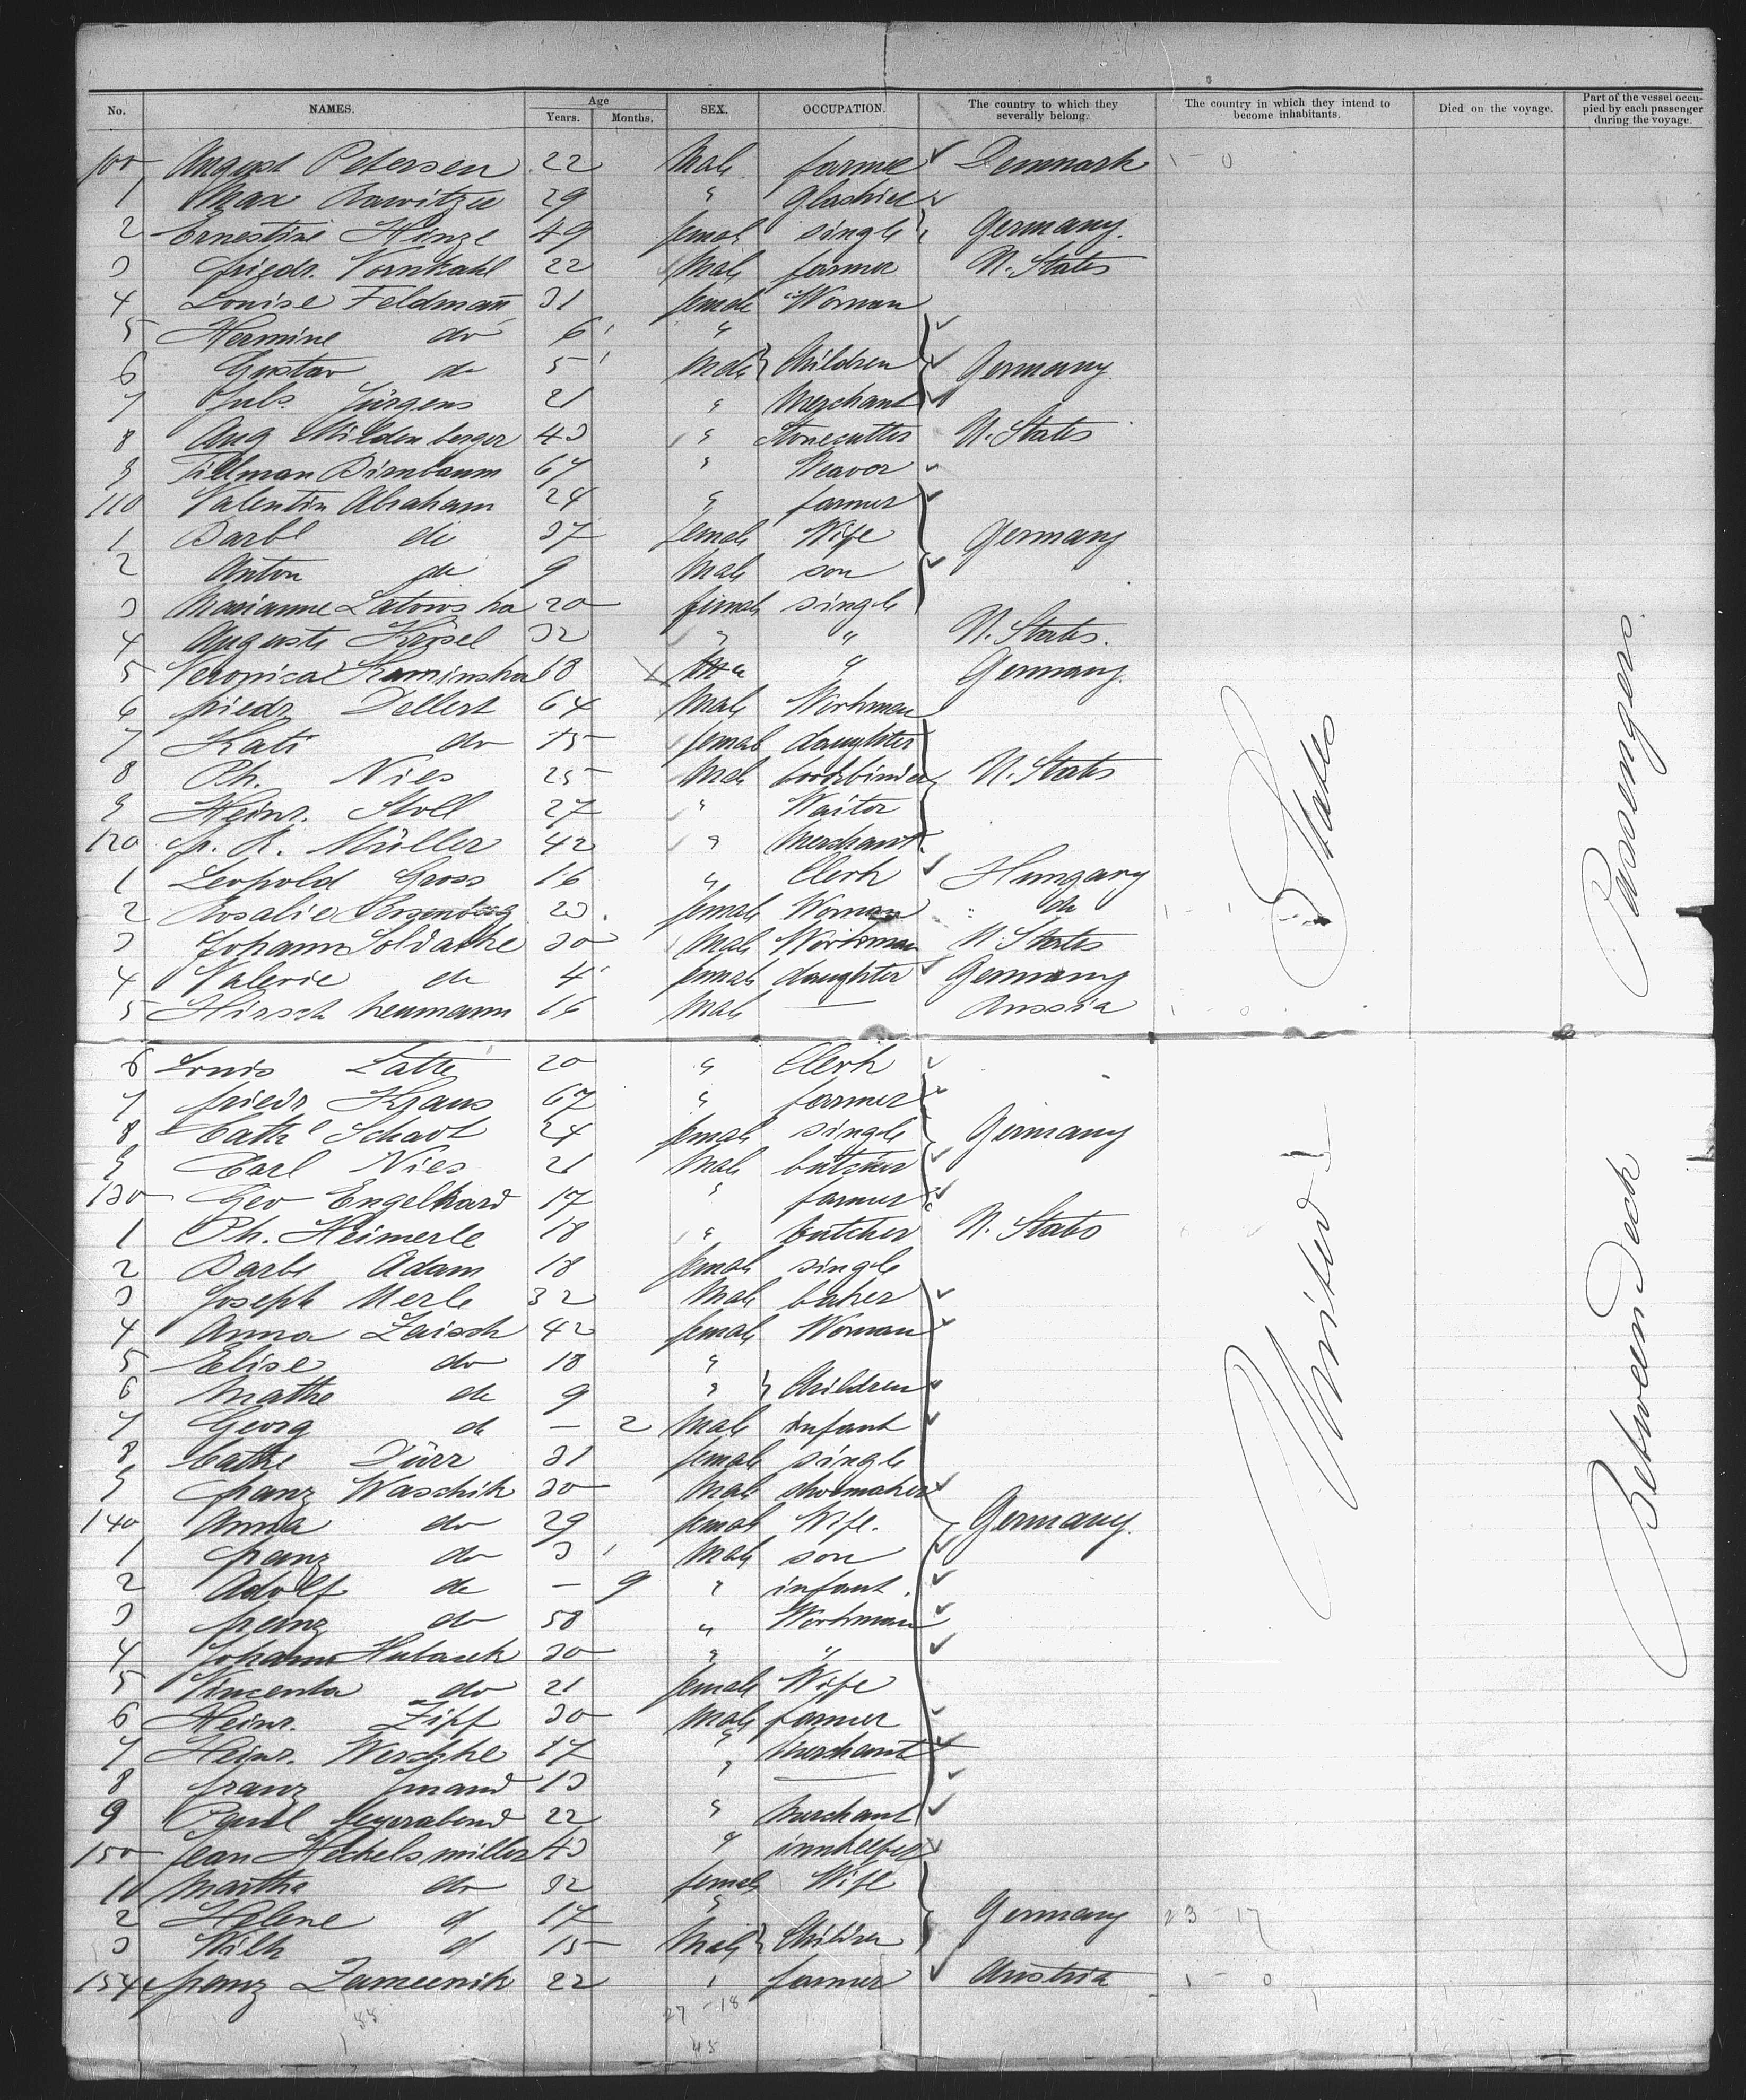 No. NAMES. Age Years. Months. SEX. OCCUPATION. The country to which they severally belong. The country in which they intend to become inhabitants. Died on the voyage. Part of the vessel occupied by each passenger during the voyage.
100 August Petersen 22 Male farmer Denmark 1 - 0
1 Max 29 "
2 Ernestine Hinze 49 female single Germany.
3 Friedr. Vornkahl 22 Male farmer U. States
4 Louise Feldmann 31 female Woman
5 Hermine do 6 "
6 Gustav do 5 Male Children Germany
7 Juls. Jürgens 21 " Merchant
8 Aug Mildenberger 43 " Stonecutter U. States
9 Tillman Birnbaum 67 " Weaver
110 Valentin Abraham 24 " farmer
1 Barbe do 37 female Wife Germany
2 Anton do 9 Male son
3 Marianne Latowska 20 female single
4 Auguste Krisel 32 " " U. States.
5 Veronica Kaminska 18 " Germany.
6 Friedr Dellert 64 Male Workman
7 Kati do 15 female daughter
8 Ph. Nies 25 Male bookbinder U. States
9 Heinr. Stoll 27 " Waiter
120 Fr. R. Müller 42 " Merchant.
1 Leopold Gross 16 " Clerk Hungary
2 Rosalie 23. female Woman " do
3 Johann Soldatke 30 Male Workman U. States
4 Valerie do 4 female daughter Germany
5 Hirsch Neumann 16 Male — Russia
6 Louis Latte 20 " Clerk
7 Friedr Kraus 67 " farmer
8 Cathe Schadt 24 female single Germany
9 Carl Nies 21 Male butcher
130 Geo Engelhard 17 " farmer
1 Ph. Heimerle 18 " butcher U. States
2 Barbe Adam 18 female single
3 Joseph Merle 32 Male baker
4 Anna Zaisch 42 female Woman
5 Elise do 18 "
6 Mathe do 9 " Children
7 Georg do — 2 Male infant
8 Cathe Dürr 31 female single
9 Franz Waschik 30 Male shoemaker
140 Anna do 29 female Wife. Germany.
1 Franz do 3 Male son
2 Adolf do — 9 " infant.
3 Franz do 58 " Workman
4 Johann Hubasek 30 " "
5 Vincenta do 21 female Wife
6 Heinr. Zipf 30 Male farmer
7 Heinr. Weschke 17 " Merchant
8 Franz Imand 13 " —
9 Paul Feyerabend 22 " Merchant
150 Jean Heckelsmiller 43 " innkeeper
1 Martha do 32 female Wife
2 Helene d 17 " Germany 23 - 17
3 Wilh d 15 Male Children
154 Franz Zameenik 22 " farmer Austria 1 - 0
88 27 - 18
45
United States
Betweendeck Passengers